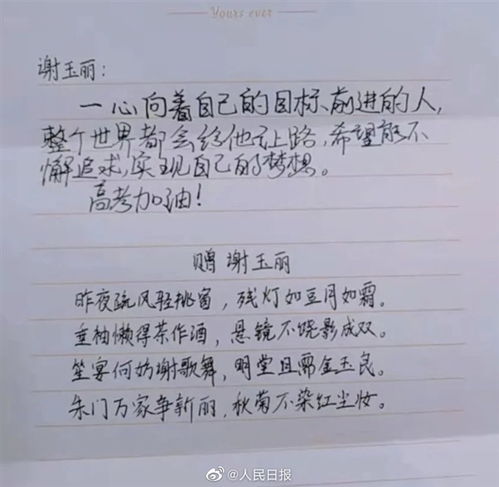 Yours ever
谢玉丽:
一心向着自己的目标前进的人,
整个世界都会给他让路,希望能不
懈追求,实现自己的梦想。
高考加油!
赠 谢玉丽
昨夜疏风轻挑窗,残灯如豆月如霜。
垂袖懒得茶作酒,悬镜不饶影成双。
笙宴何妨谢歌舞,明堂且需金玉良。
朱门万家争新丽,秋菊不染红尘妆。
@人民日报